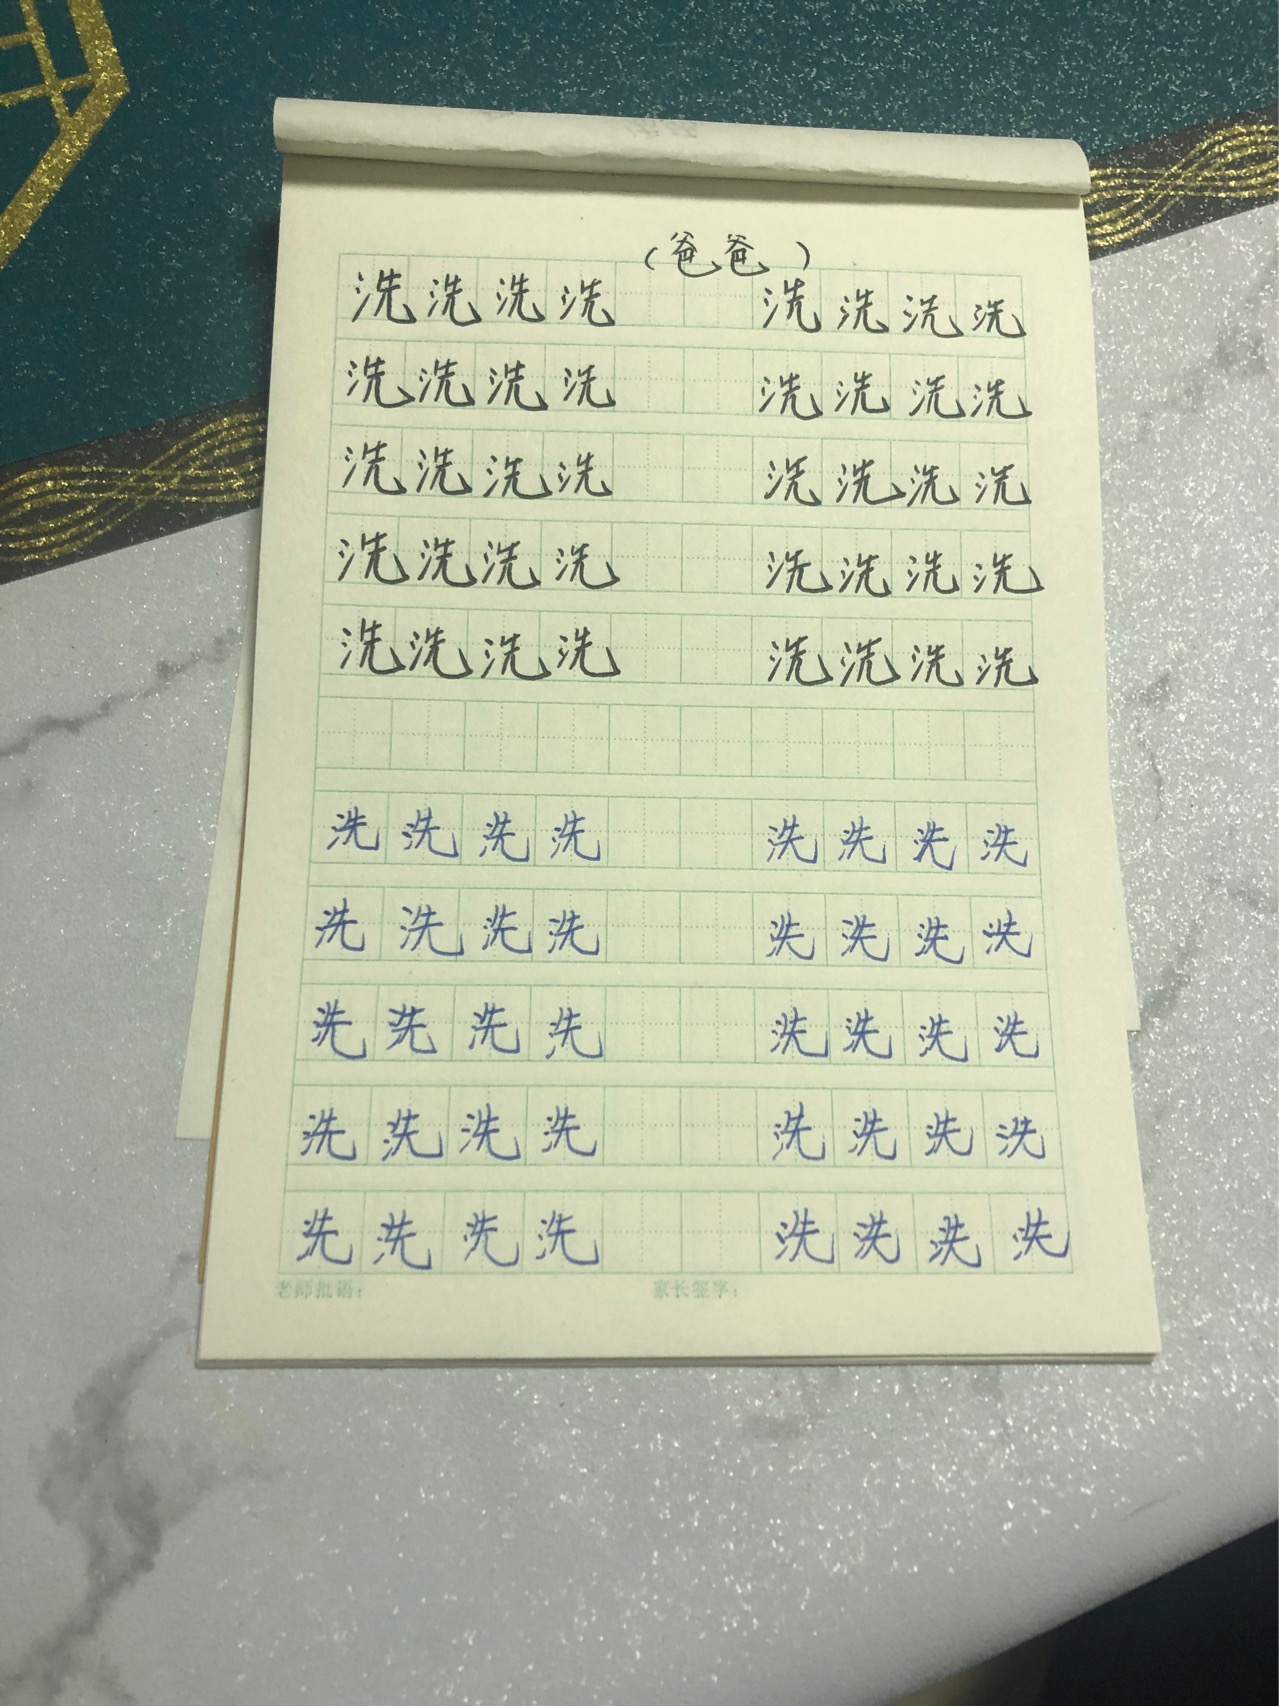 （爸爸）
洗洗洗洗 洗洗洗洗
洗洗洗洗 洗洗洗洗
洗洗洗洗 洗洗洗洗
洗洗洗洗 洗洗洗洗
洗洗洗洗 洗洗洗洗
洗洗洗洗 洗洗洗洗
洗洗洗洗 洗洗洗洗
洗洗洗洗 洗洗洗洗
洗洗洗洗 洗洗洗洗
洗洗洗洗 洗洗洗洗
老师批语： 家长签字：